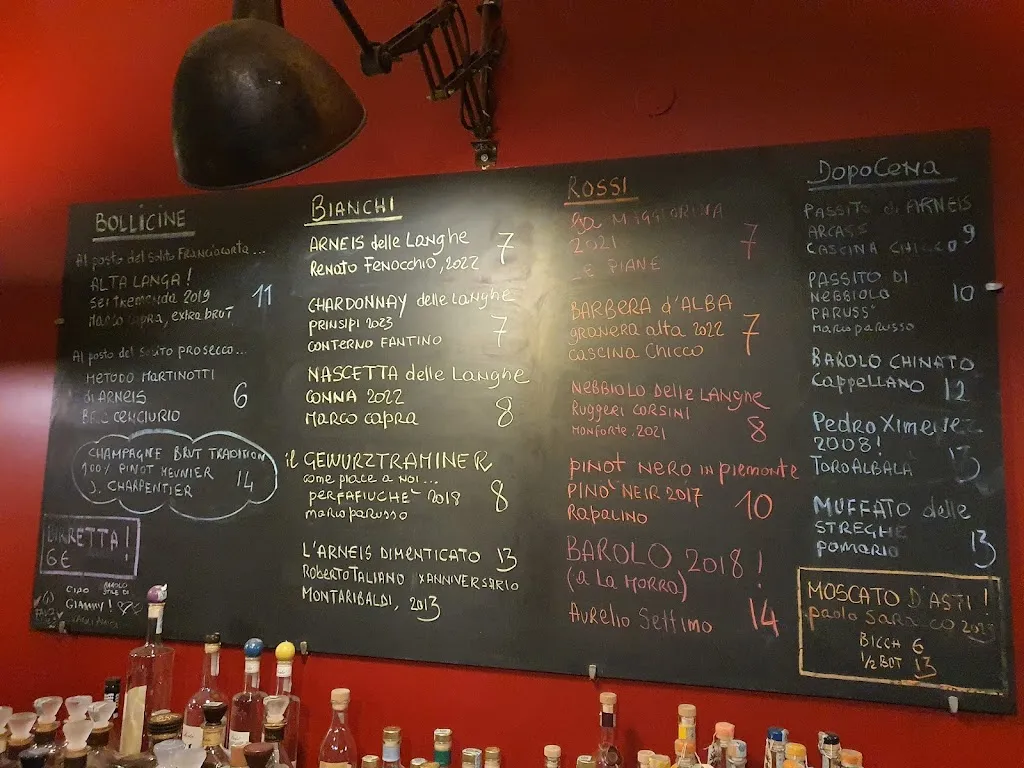 BOLLICINE
Al posto del solito Franciacorta...
ALTA LANGA!
Seitremenda 2019 11
Marco Capra, extra brut
Al posto del solito prosecco...
METODO MARTINOTTI
di ARNEIS 6
CENCIURIO
CHAMPAGNE BRUT TRADITION
100% PINOT MEUNIER 14
J. CHARPENTIER
BIRRETTA!
6€
CIAO
GIAMMY!
BIANCHI
ARNEIS delle Langhe 7
Renato Fenocchio, 2022
CHARDONNAY delle Langhe
PRINSIPI 2023 7
CONTERNO FANTINO
NASCETTA delle Langhe
CONNA 2022
Marco Capra 8
il GEWURZTRAMINER
come piace a noi...
PERFAFIUCHÈ 2018 8
Marco Parusso
L'ARNEIS DIMENTICATO 13
Roberto Taliano XANNIVERSARIO
MONTARIBALDI, 2013
ROSSI
La MAGGIORINA
2021 7
LE PIANE
BARBERA d'ALBA
granera alta 2022 7
Cascina Chicco
NEBBIOLO Delle LANGHe
Ruggeri CORSINI 8
MONFORTE, 2021
PINOT NERO in Piemonte
PINO' NEIR 2017 10
Rapalino
BAROLO 2018!
(a La Morra)
Aurelio Settimo 14
DOPOCENA
PASSITO di ARNEIS
ARCASS 9
CASCINA CHICCO
PASSITO DI
NEBBIOLO 10
PARUSS'
Marco Parusso
BAROLO CHINATO
Cappellano 12
Pedro Ximenez
2008! 13
TOROALBALA
MUFFATO delle
STREGHE
pomario 13
MOSCATO D'ASTI!
paolo SARACCO
BICCH 6
1/2 BOT 13